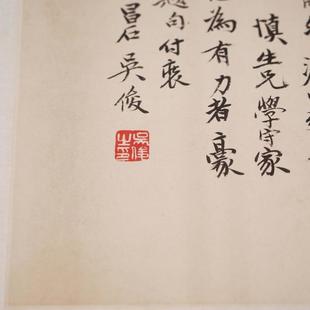 慎生兄學守家
為有力者豪
題句付裝
昌石吳俊
吳俊之印